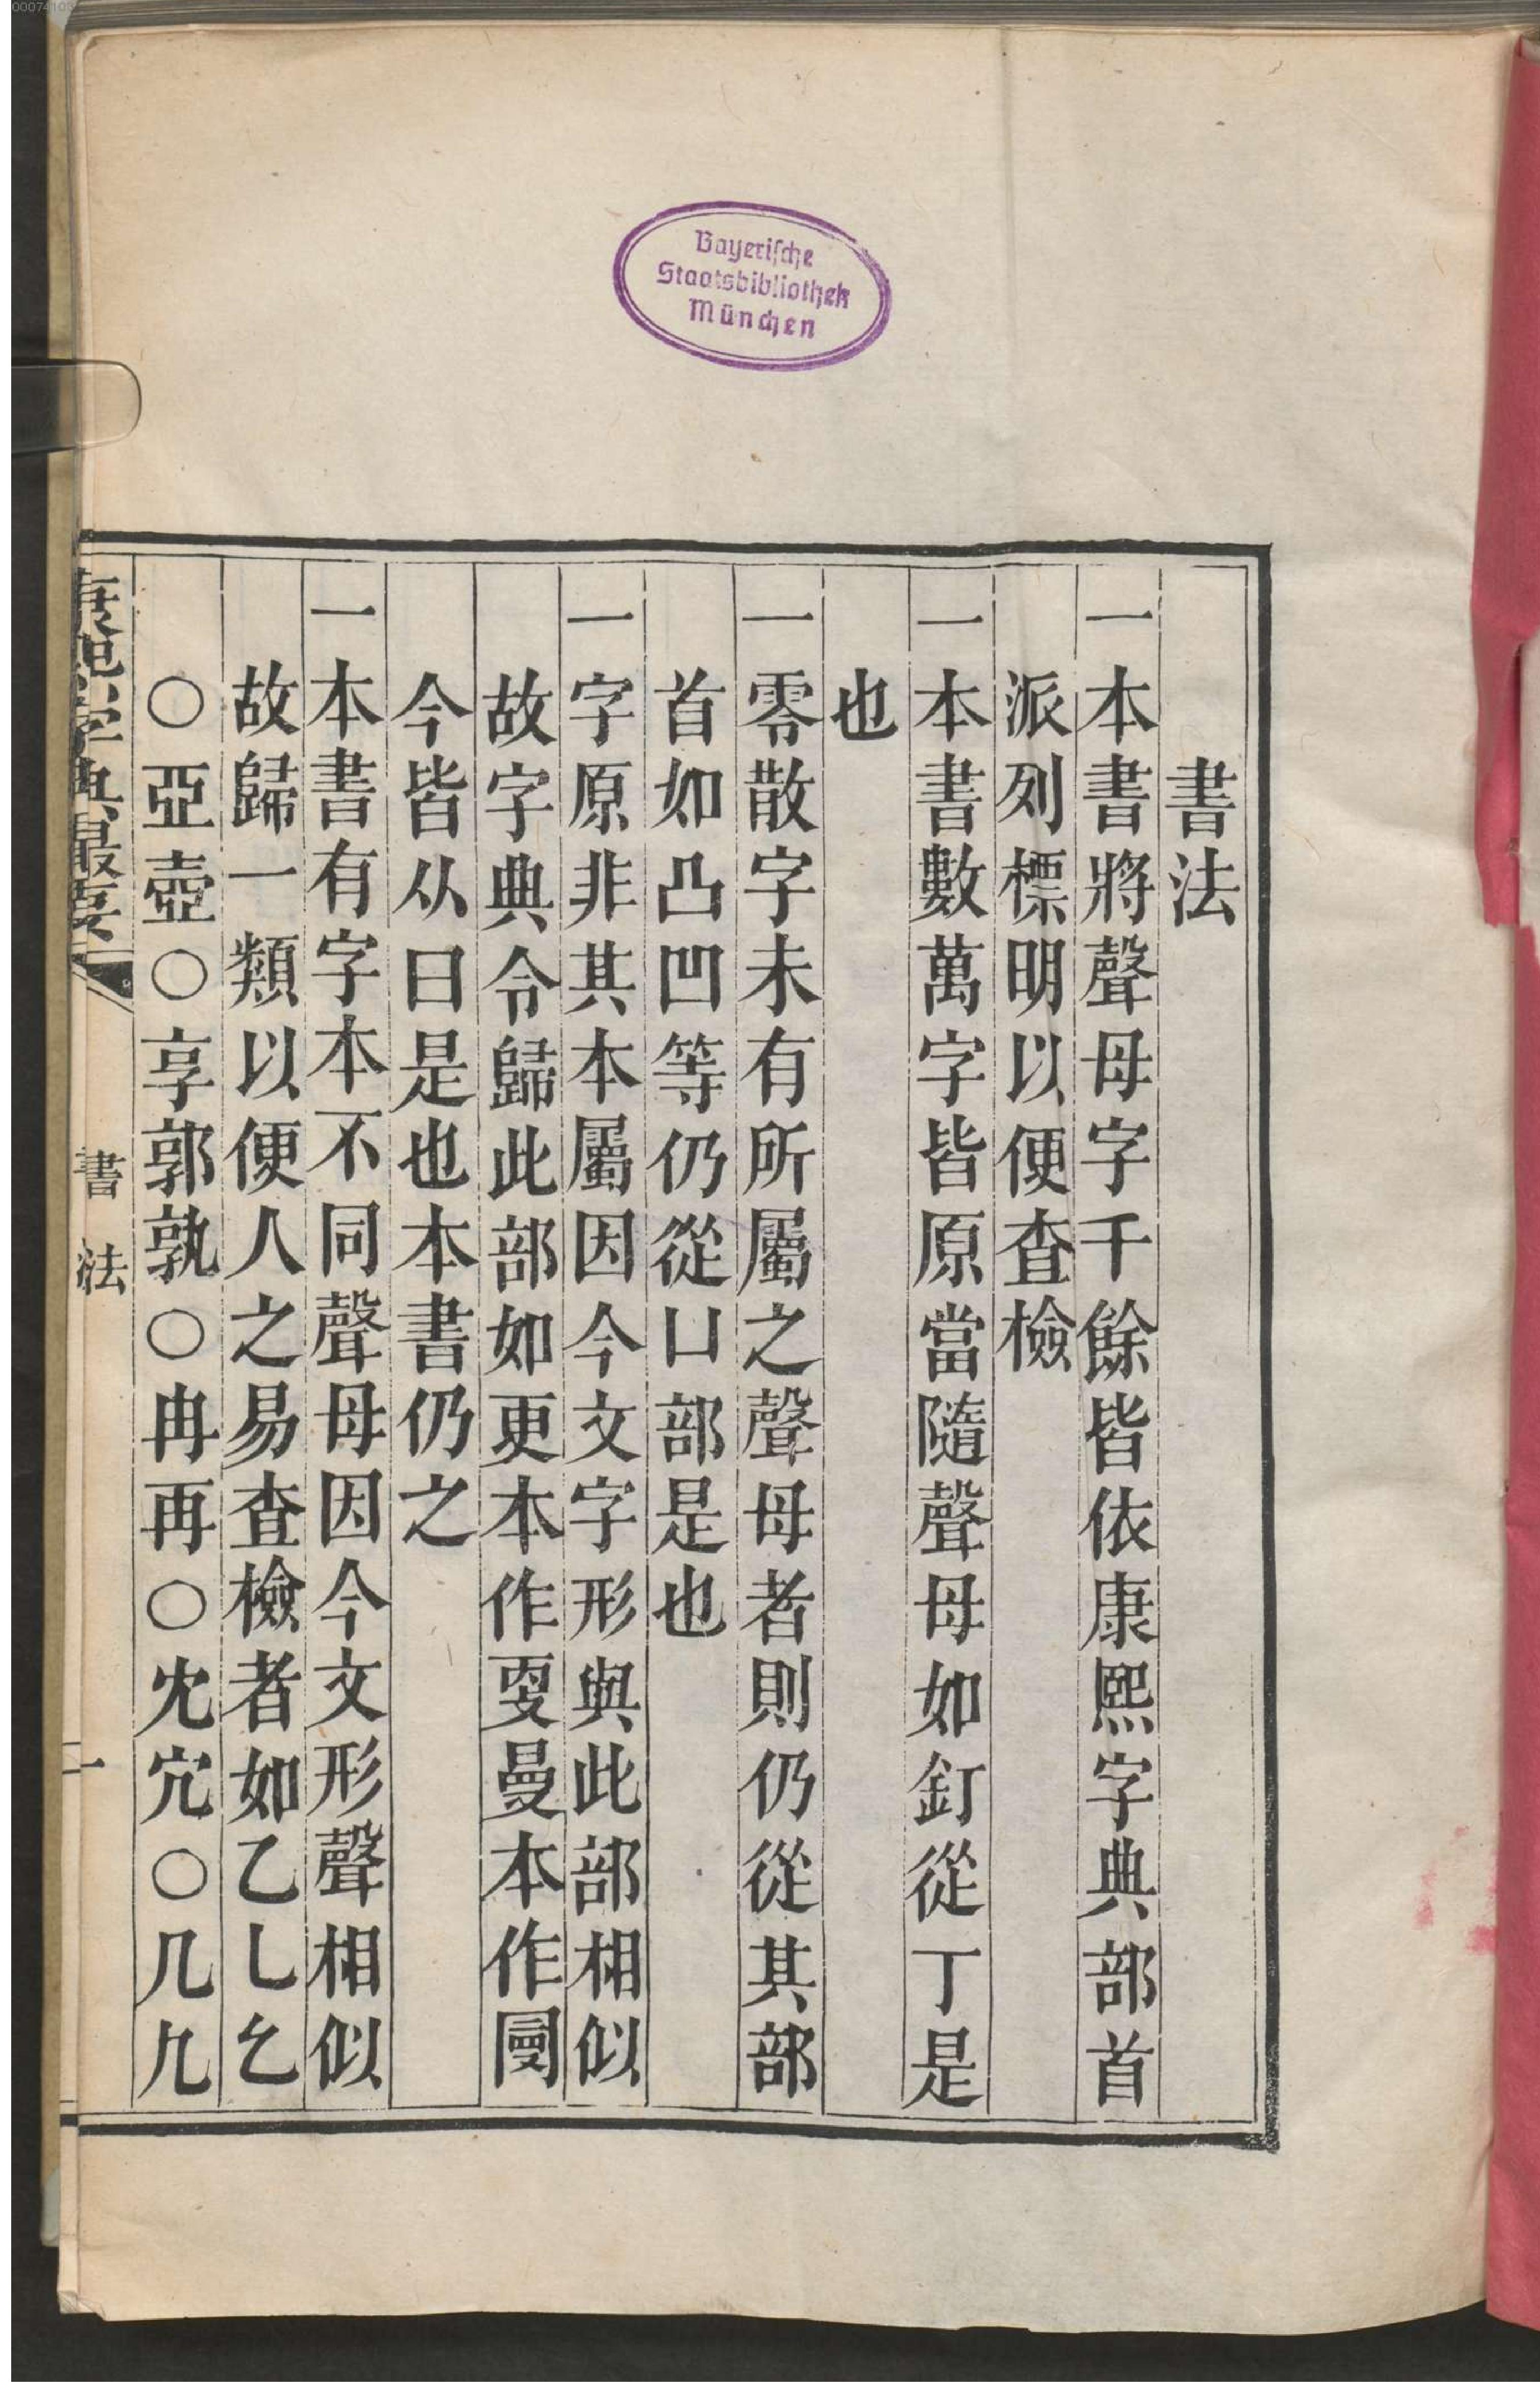 00074103
Bayerische
Staatsbibliothek
München
書法
一本書將聲母字千餘皆依康熙字典部首
派列標明以便查檢
一本書數萬字皆原當隨聲母如釘從丁是
也
一零散字未有所屬之聲母者則仍從其部
首如凸凹等仍從凵部是也
一字原非其本屬因今文字形與此部相似
故字典令歸此部如更本作㪅曼本作𡇬
今皆从曰是也本書仍之
一本書有字本不同聲母因今文形聲相似
故歸一類以便人之易查檢者如乙乚乞
○亞壺○享郭孰○冉再○冘宂○几凢
康熙字典最要
書法
一